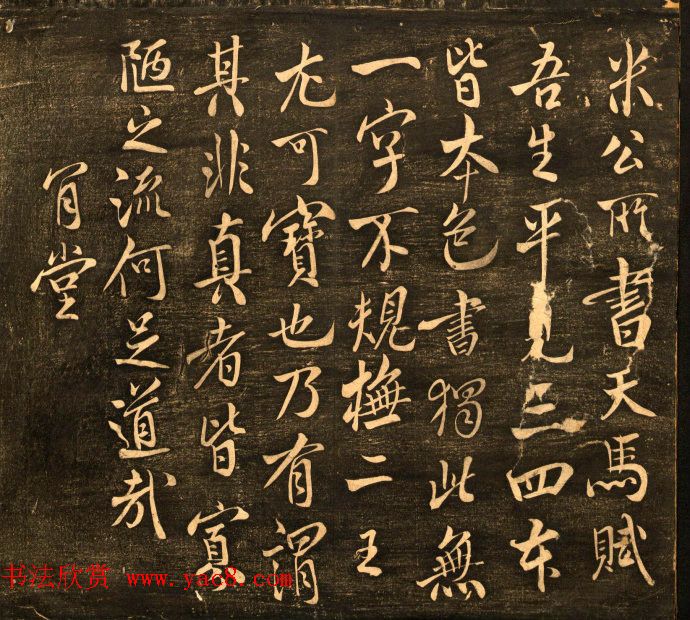 米公所書天馬賦
吾生平見三四本
皆本色書獨此無
一字不規橅二王
尤可寶也乃有謂
其非真者皆寡
陋之流何足道哉
肯堂
书法欣赏 www.yac8.com